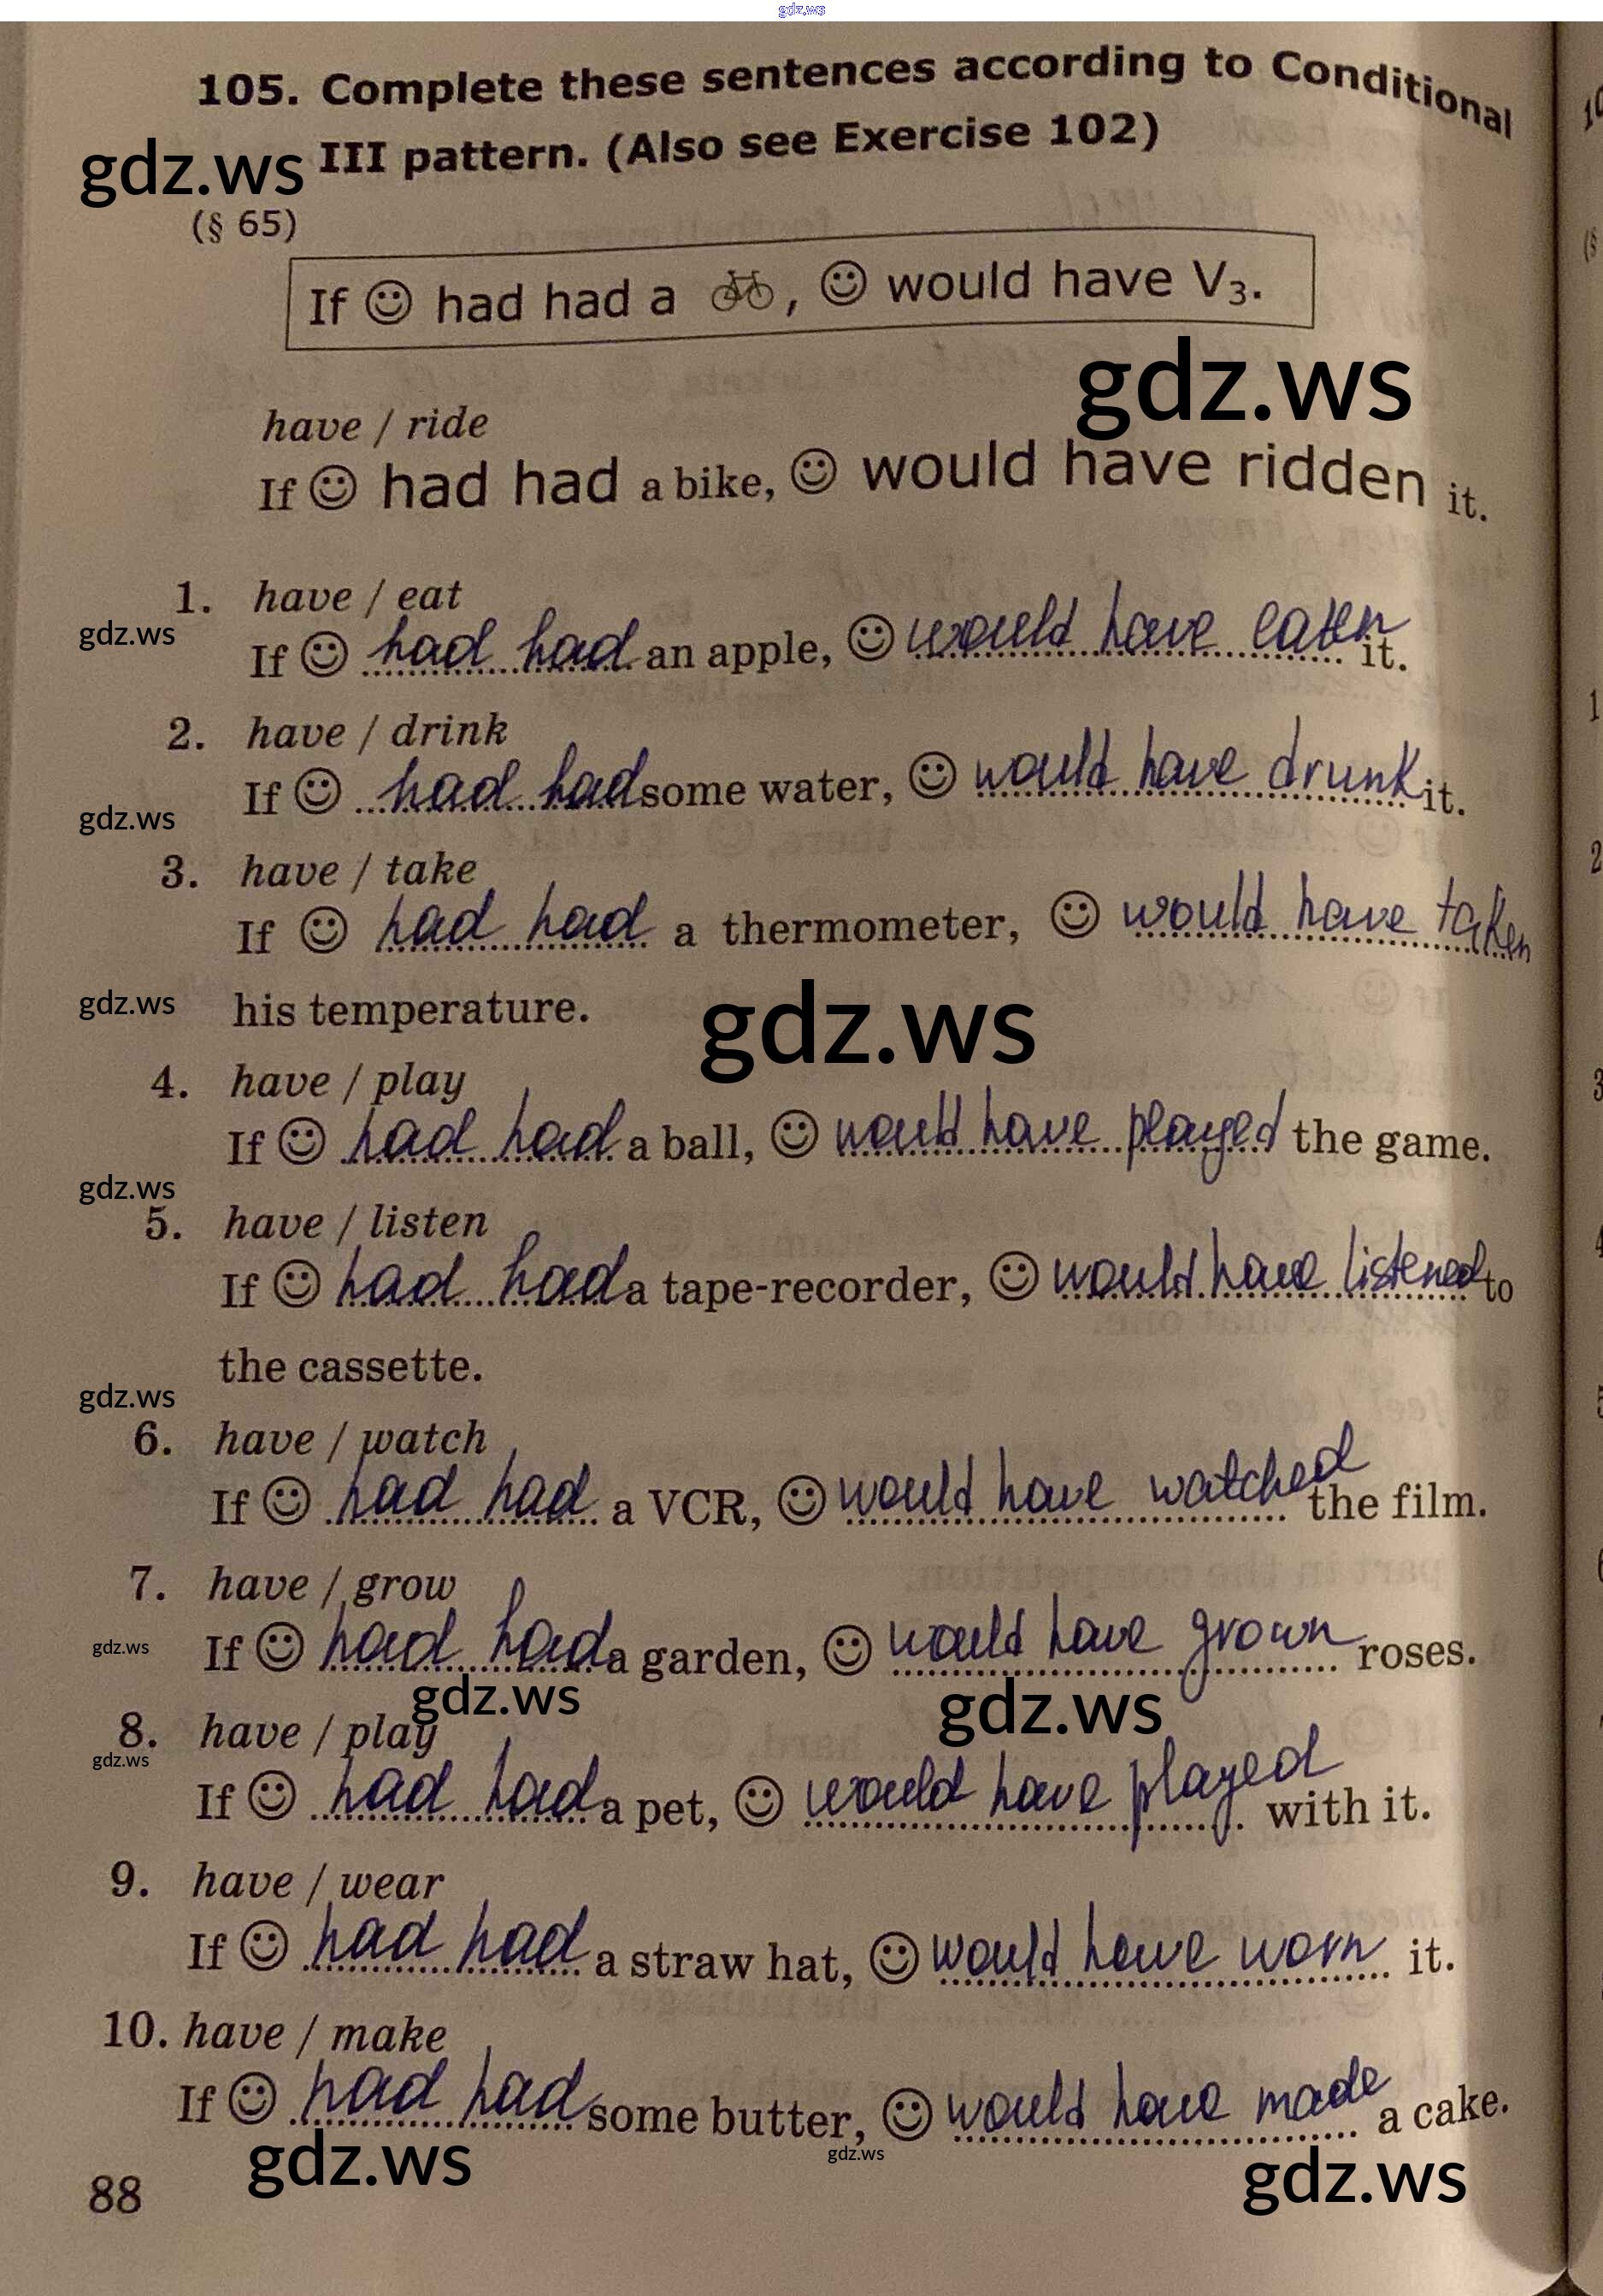 gdz.ws
105. Complete these sentences according to Conditional
III pattern. (Also see Exercise 102)
gdz.ws
(§ 65)
If ☺ had had a 🚲, ☺ would have V₃.
gdz.ws
have / ride
If ☺ had had a bike, ☺ would have ridden it.
1. have / eat
gdz.ws
If ☺ had had an apple, ☺ would have eaten it.
2. have / drink
If ☺ had had some water, ☺ would have drunk it.
gdz.ws
3. have / take
If ☺ had had a thermometer, ☺ would have taken
gdz.ws
his temperature.
gdz.ws
4. have / play
If ☺ had had a ball, ☺ would have played the game.
gdz.ws
5. have / listen
If ☺ had had a tape-recorder, ☺ would have listened to
the cassette.
gdz.ws
6. have / watch
If ☺ had had a VCR, ☺ would have watched the film.
7. have / grow
gdz.ws
If ☺ had had a garden, ☺ would have grown roses.
gdz.ws
gdz.ws
8. have / play
gdz.ws
If ☺ had had a pet, ☺ would have played with it.
9. have / wear
If ☺ had had a straw hat, ☺ would have worn it.
10. have / make
If ☺ had had some butter, ☺ would have made a cake.
gdz.ws
gdz.ws
gdz.ws
88